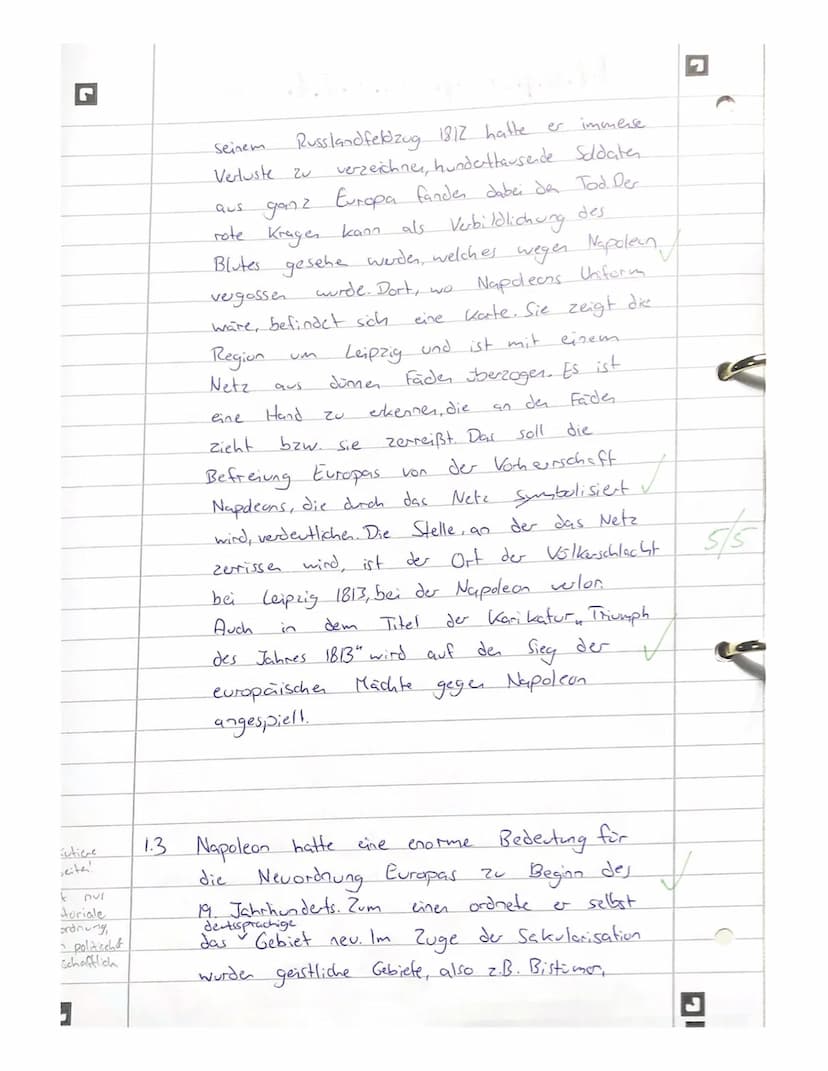 seinem Russlandfeldzug 1812 hatte er immense
Verluste zu verzeichnen, hunderttausende Soldaten
aus ganz Europa fanden dabei den Tod. Der
rote Kragen kann als Verbildlichung des
Blutes gesehen werden, welches wegen Napoleon
vergossen wurde. Dort, wo Napoleons Uniform
wäre, befindet sich eine Karte. Sie zeigt die
Region um Leipzig und ist mit einem
Netz aus dünnen Fäden überzogen. Es ist
eine Hand zu erkennen, die an den Fäden
zieht bzw. sie zerreißt. Das soll die
Befreiung Europas von der Vorherrschaft
Napoleons, die durch das Netz symbolisiert
wird, verdeutlichen. Die Stelle, an der das Netz
zerrissen wird, ist der Ort der Völkerschlacht
5/5
bei Leipzig 1813, bei der Napoleon verlor.
Auch in dem Titel der Karikatur „Triumph
des Jahres 1813" wird auf den Sieg der
europäischen Mächte gegen Napoleon
angespielt.
1.3 Napoleon hatte eine enorme Bedeutung für
die Neuordnung Europas zu Beginn des
19. Jahrhunderts. Zum einen ordnete er selbst
das deutssprachige Gebiet neu. Im Zuge der Säkularisation
wurden geistliche Gebiete, also z.B. Bistümer,
nur
toriale
ordnung,
politisch
schaftlich